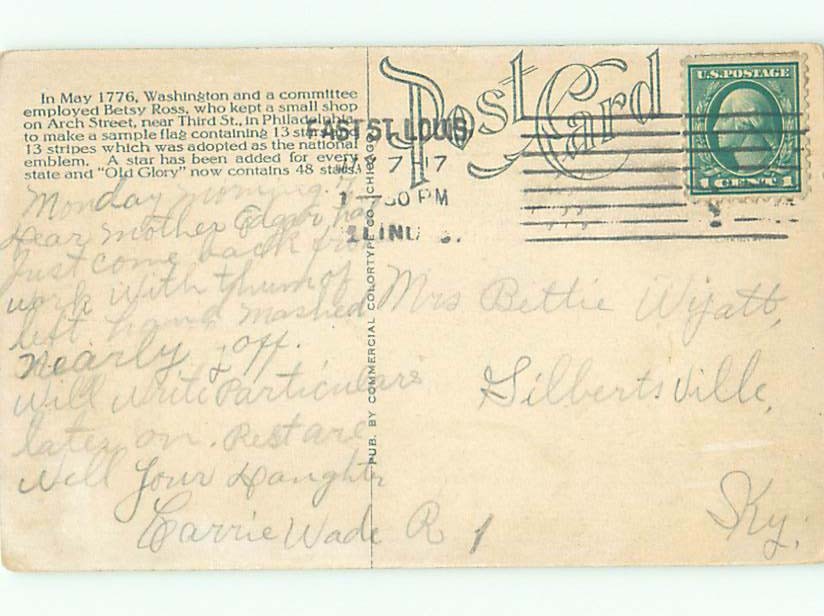 In May 1776, Washington and a committee
employed Betsy Ross, who kept a small shop
on Arch Street, near Third St., in Philadelphia,
to make a sample flag containing 13 stars
13 stripes which was adopted as the national
emblem. A star has been added for every
state and "Old Glory" now contains 48 stars.
Post Card
U.S. POSTAGE
1 CENT 1
EAST ST. LOUIS
7 17
1 30 PM
ILLINOIS.
PUB. BY COMMERCIAL COLORTYPE CO. CHICAGO
Monday morning
Dear Mother Edgar has
Just come back from
work with thum of
left hand mashed
nearly off.
Will write Particulars
later on. Rest are
well Your Daughter
Carrie Wade R 1
Mrs Bettie Wyatt,
Gilbertsville,
Ky.